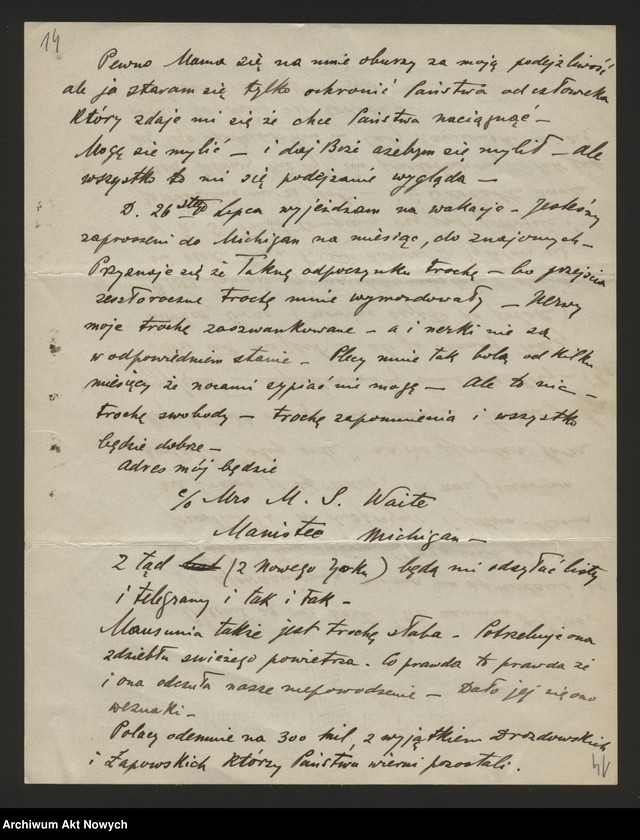 14
Pewno Mama się na mnie oburzy za moją podejżliwość
ale ja staram się tylko ochronić Państwa od człowieka
Który zdaje mi się że chce Państwa naciągnąć –
Mogę sie mylić – i daj Boże ażebym się mylił – ale
wszystko to mi się podejżanie wygląda –
D. 26 stego Lipca wyjeżdżam na wakacje – Jesteśmy
zaproszeni do Michigan na miesiąc, do znajomych –
Przyznaje się że łaknę odpoczynku trochę – bo przejścia
zeszłoroczne trochę mnie wymordowały – Nerwy
moje trochę zaszwankowane – a i nerki nie są
w odpowiedniem stanie – Plecy mnie tak bolą od kilku
miesięcy że nocami sypiać nie mogę – Ale to nic –
trochę swobody – trochę zapomnienia i wszystko
będzie dobrze –
Adres mój będzie
c/o Mrs M. S. Waite
Manistee Michigan –
Z tąd (z Nowego Yorku) będą mi odsyłać listy
i telegramy i tak i tak –
Mausunia także jest trochę słaba – Potrzebuje ona
zdziebłu swieżego powietrza. Co prawda to prawda że
i ona odczuła nasze niepowodzenie – Dało jej się ono
weznaki –
Polacy odemnie na 300 mil, z wyjątkiem Drozdowskich
i Łapowskich Którzy Państwu wierni pozostali.
14
Archiwum Akt Nowych